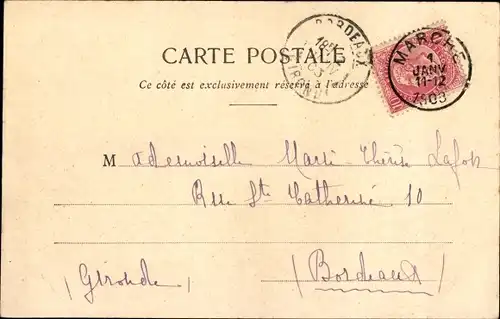 CARTE POSTALE
Ce côté est exclusivement réservé à l'adresse
BORDEAUX
GIRONDE
MARCHE
1
JANV
11-12
1903
10
Mademoiselle Marie-Thérèse Lafon
Rue Ste Catherine 10
(Gironde)
(Bordeaux)